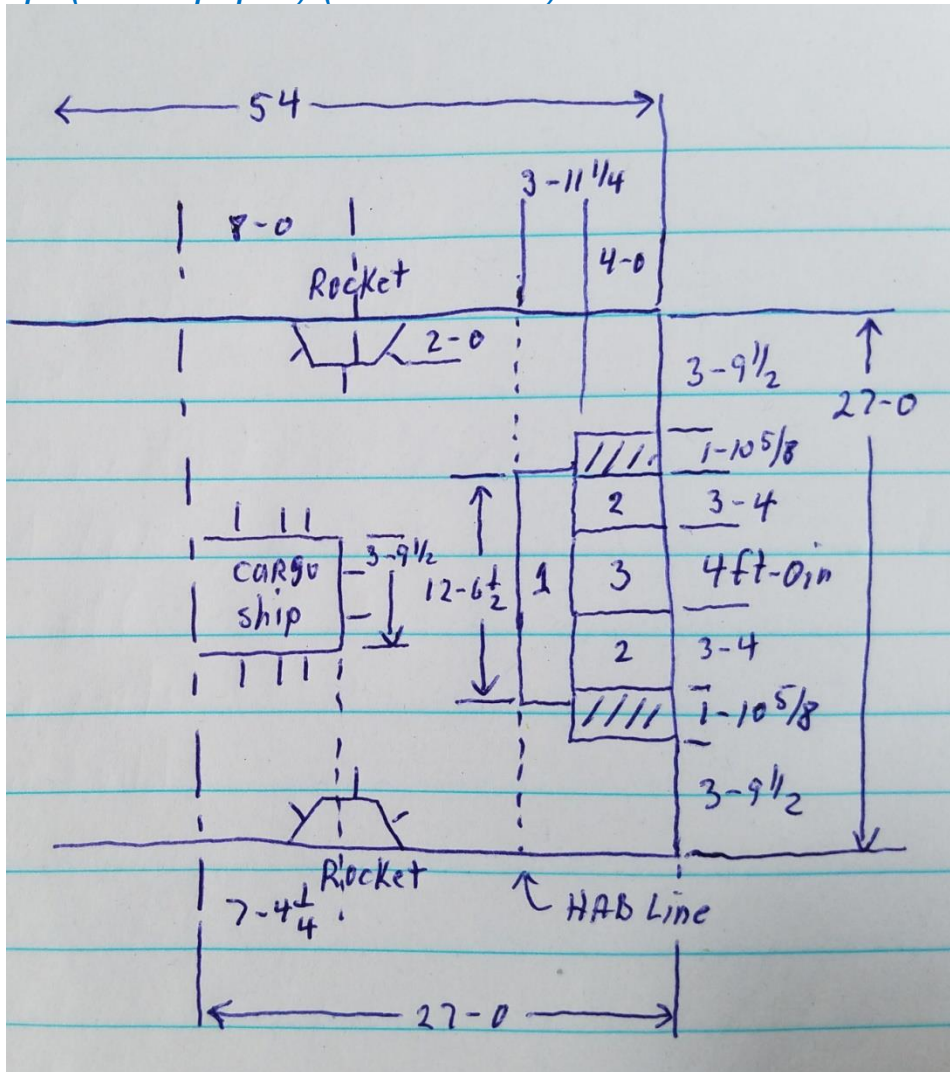 54
3-11 1/4
8-0
4-0
Rocket
2-0
3-9 1/2
27-0
1-10 5/8
2
3-4
cargo
ship
3-9 1/2
12-6 1/2
1
3
4ft-0in
2
3-4
1-10 5/8
3-9 1/2
Rocket
7-4 1/4
HAB Line
27-0